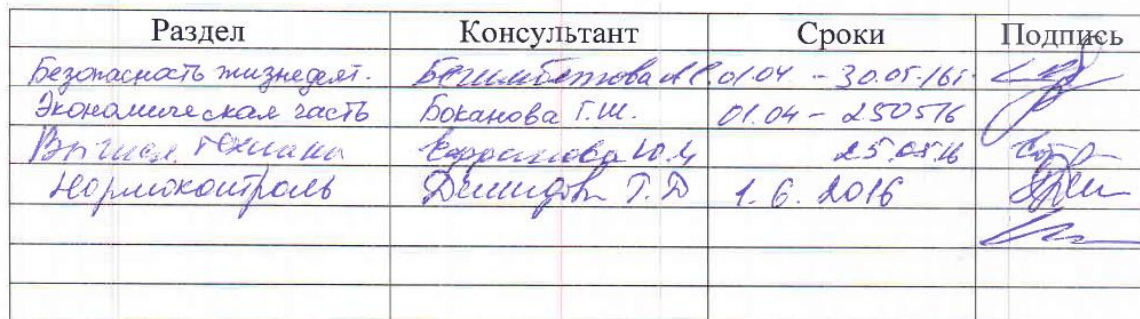 Раздел Консультант Сроки Подпись
Безопасность жизнедеят. Бегимбетова А.С. 01.04 - 30.05.16г.
Экономическая часть Боканова Г.Ш. 01.04 - 250516
Вычисл. техника Ю.М 25.05.16
Нормоконтроль Демидов Г.Д 1.6.2016